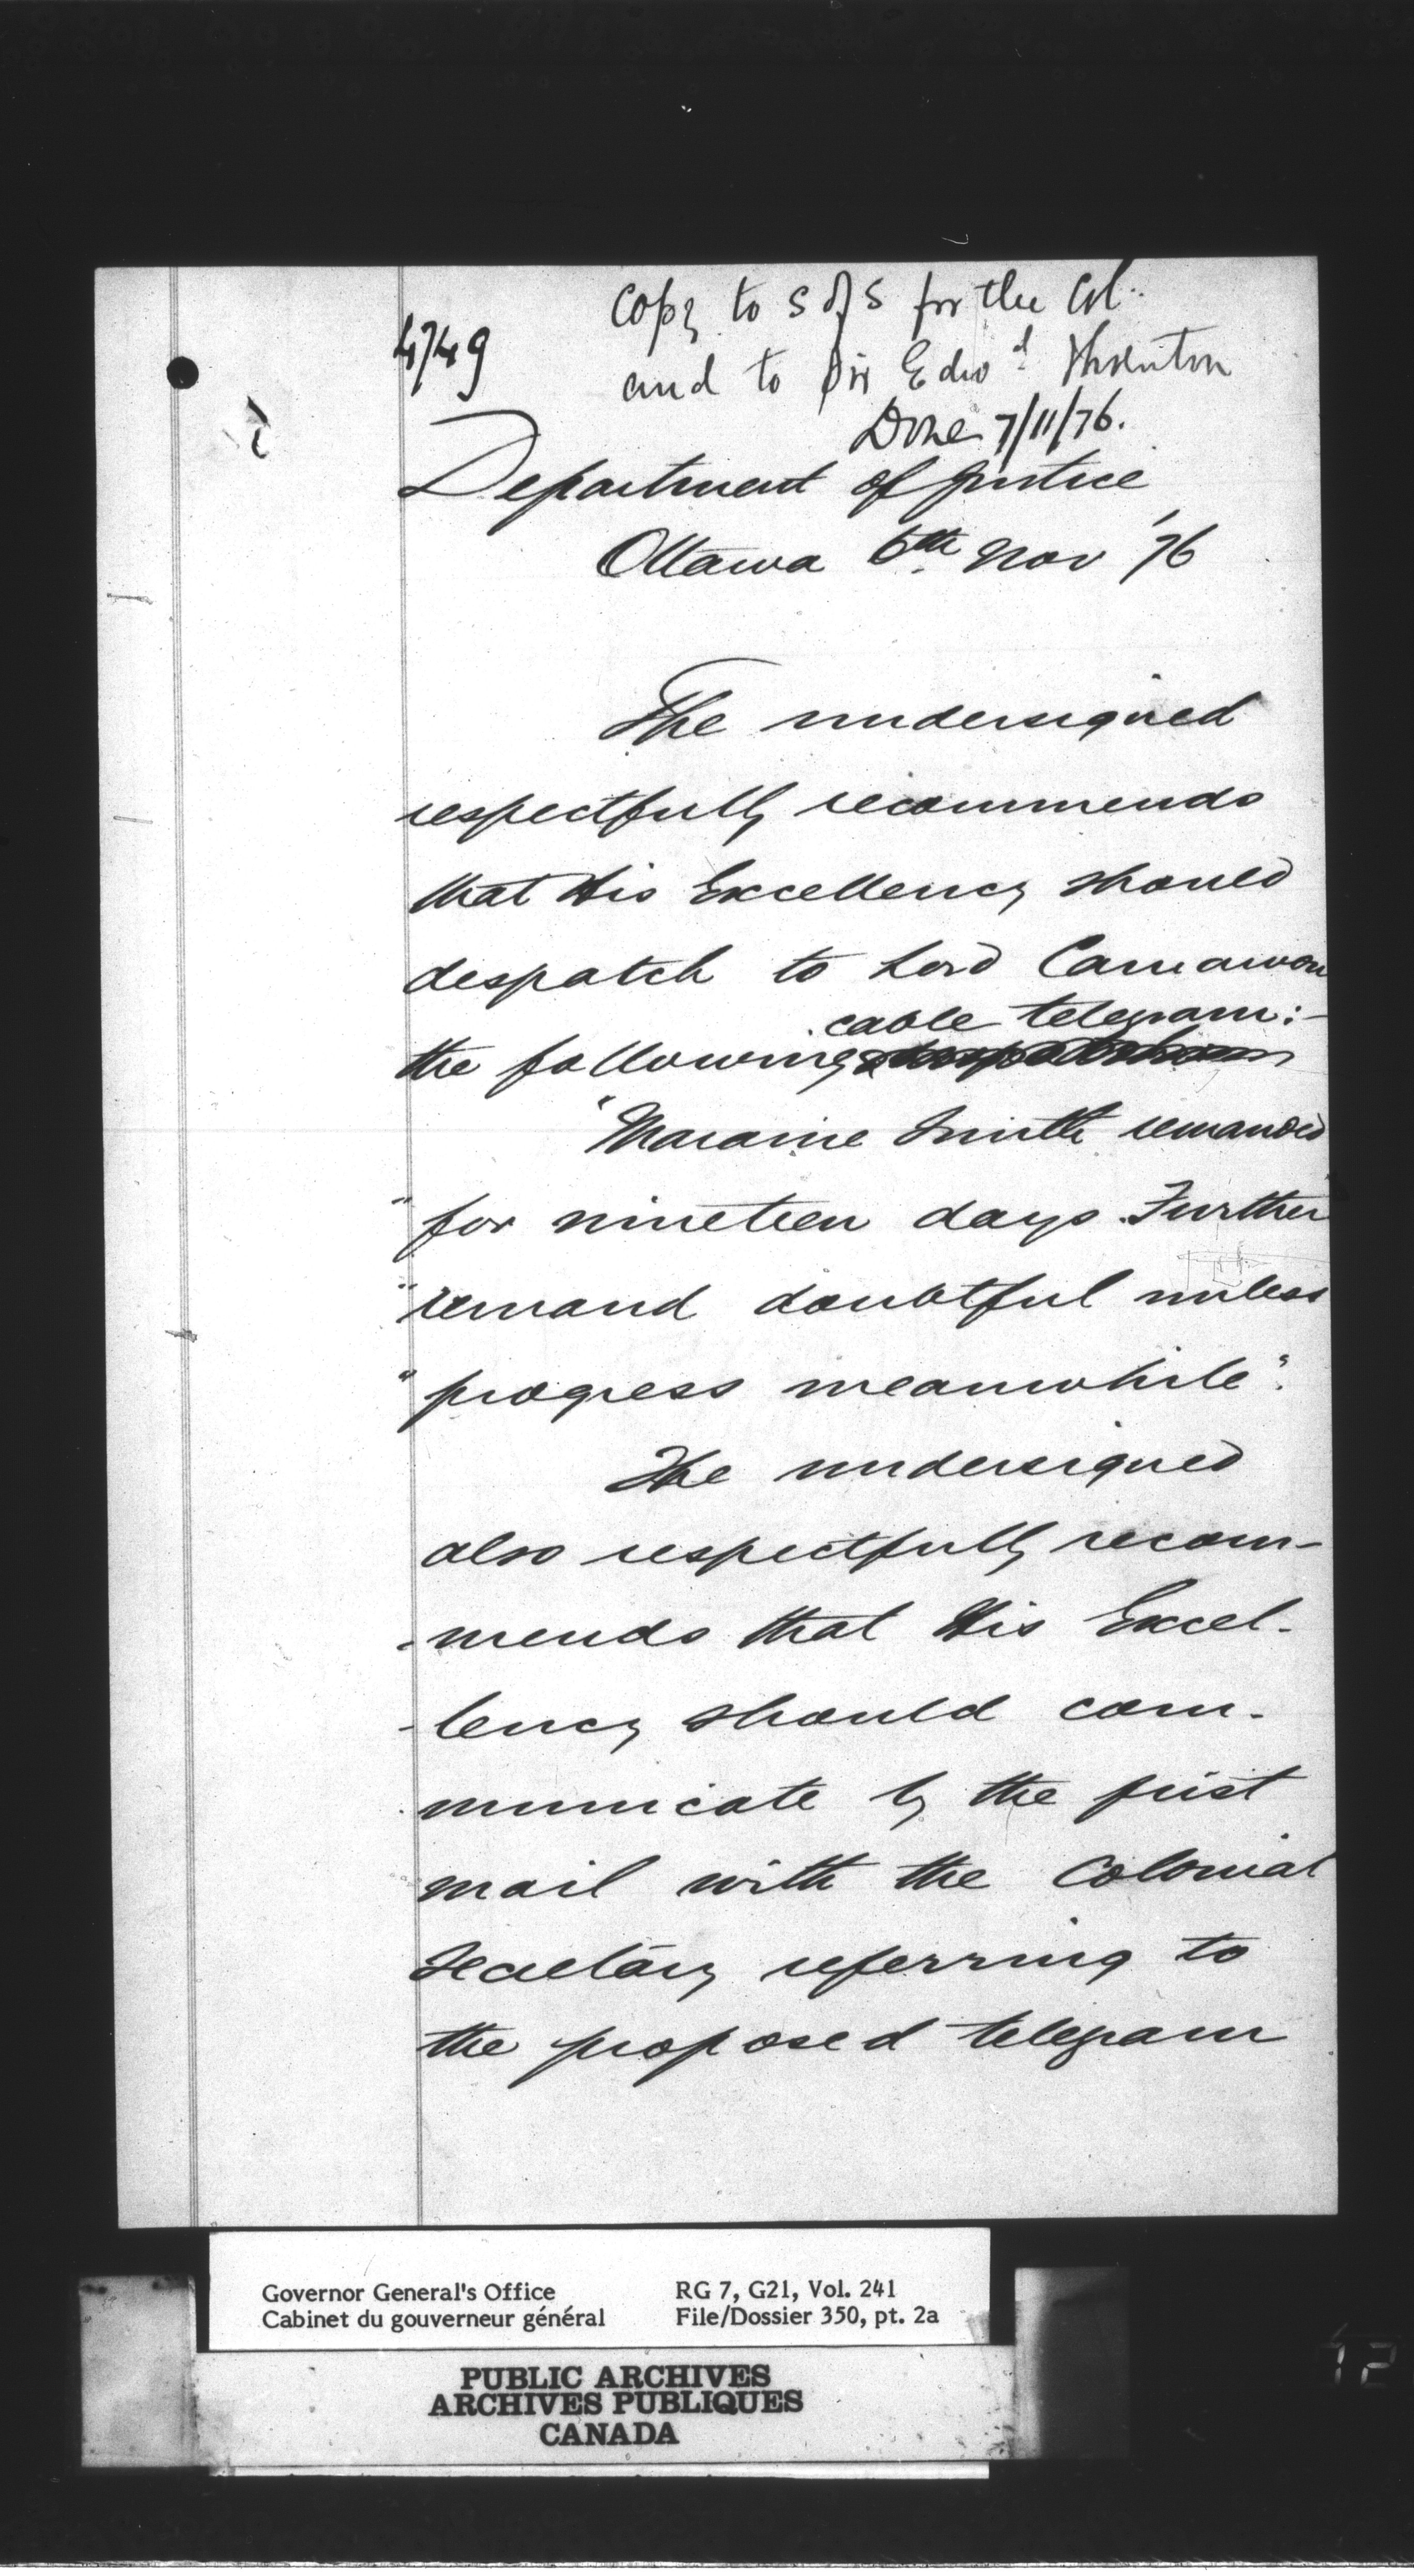 Copy to S of S for the Col.
4749
and to Sir Edwd Thornton
Done 7/11/76.
Department of Justice
Ottawa 6th Nov '76
The undersigned
respectfully recommends
that His Excellency should
despatch to Lord Carnarvon
cable telegram:-
the following
"Maraine Smith remanded
"for nineteen days. Further
"remand doubtful unless
"progress meanwhile".
The undersigned
also respectfully recom-
-mends that His Excel-
-lency should com-
municate by the first
mail with the Colonial
Secretary referring to
the proposed telegram
Governor General's Office
Cabinet du gouverneur général
RG 7, G21, Vol. 241
File/Dossier 350, pt. 2a
PUBLIC ARCHIVES
ARCHIVES PUBLIQUES
CANADA
12